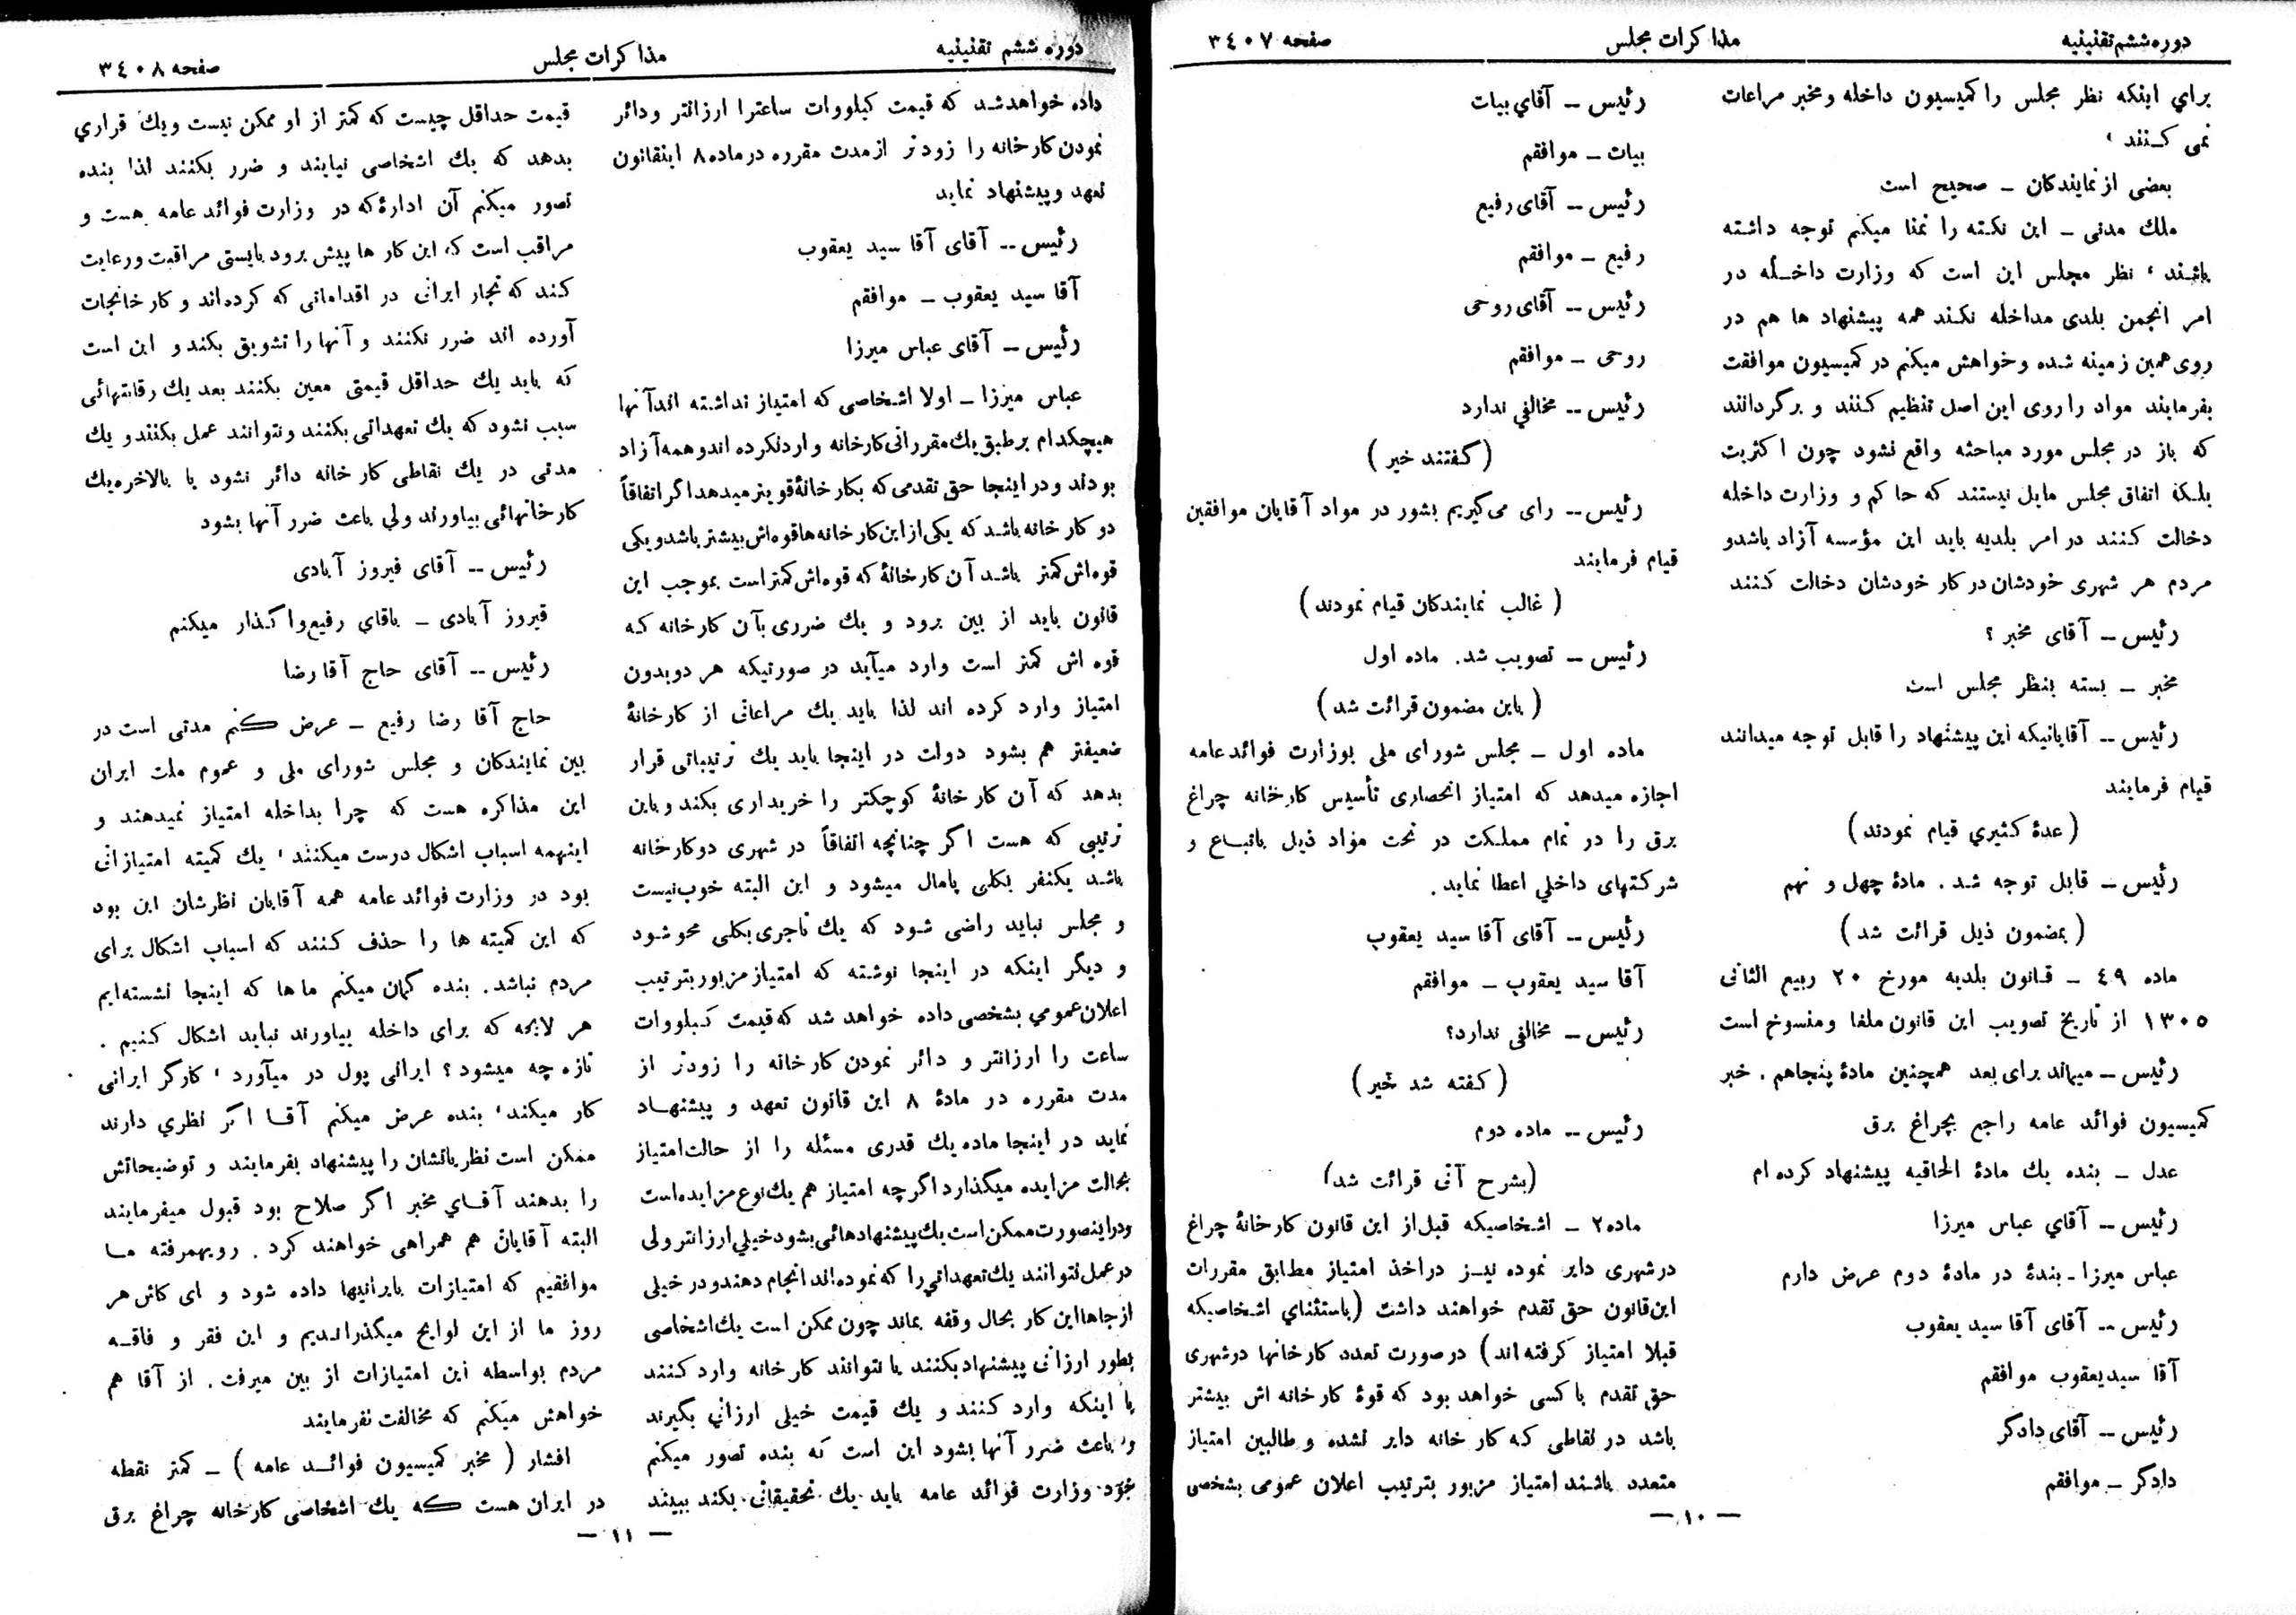 دوره ششم تقنینیه
مذاکرات مجلس
صفحه ۳٤۰۷
برای اینکه نظر مجلس را کمیسیون داخله ومخبر مراعات
نمی کنند ،
بعضی از نمایندگان ــ صحیح است
ملك مدنی ــ این نکته را تمنا میکنم توجه داشته
باشند ، نظر مجلس این است که وزارت داخله در
امر انجمن بلدی مداخله نکند همه پیشنهاد ها هم در
روی همین زمینه شده وخواهش میکنم در کمیسیون موافقت
بفرمایند مواد را روی این اصل تنظیم کنند و برگردانند
که باز در مجلس مورد مباحثه واقع نشود چون اکثریت
بلکه اتفاق مجلس مایل نیستند که حاکم و وزارت داخله
دخالت کنند در امر بلدیه باید این مؤسسه آزاد باشدو
مردم هر شهری خودشان در کار خودشان دخالت کنند
رئیس ــ آقای مخبر ؟
مخبر ــ بسته بنظر مجلس است
رئیس ــ آقایانیکه این پیشنهاد را قابل توجه میدانند
قیام فرمایند
(عدهٔ کثیری قیام نمودند)
رئیس ــ قابل توجه شد . مادهٔ چهل و نهم
(بمضمون ذیل قرائت شد)
ماده ٤۹ ــ قانون بلدیه مورخ ۲۰ ربیع الثانی
۱۳۰٥ از تاریخ تصویب این قانون ملغا ومنسوخ است
رئیس ــ میماند برای بعد همچنین مادهٔ پنجاهم . خبر
کمیسیون فوائد عامه راجع بچراغ برق
عدل ــ بنده یك مادهٔ الحاقیه پیشنهاد کرده ام
رئیس ــ آقاي عباس میرزا
عباس میرزا ــ بندهٔ در مادهٔ دوم عرض دارم
رئیس ــ آقای آقا سید یعقوب
آقا سیدیعقوب موافقم
رئیس ــ آقای دادگر
دادگر ــ موافقم
رئیس ــ آقاي بیات
بیات ــ موافقم
رئیس ــ آقای رفیع
رفیع ــ موافقم
رئیس ــ آقای روحی
روحی ــ موافقم
رئیس ــ مخالفي ندارد
(گفتند خیر)
رئیس ــ رای می گیریم بشور در مواد آقایان موافقین
قیام فرمایند
(غالب نمایندگان قیام نمودند)
رئیس ــ تصویب شد. ماده اول
(باین مضمون قرائت شد)
ماده اول ــ مجلس شورای ملی بوزارت فوائد عامه
اجازه میدهد که امتیاز انحصاری تأسیس کارخانه چراغ
برق را در تمام مملکت در تحت مواد ذیل باتباع و
شرکتهای داخلي اعطا نماید .
رئیس ــ آقای آقا سید یعقوب
آقا سید یعقوب ــ موافقم
رئیس ــ مخالفی ندارد؟
(گفته شد خیر)
رئیس ــ ماده دوم
(بشرح آتی قرائت شد)
ماده۲ ــ اشخاصیکه قبل از این قانون کارخانهٔ چراغ
درشهری دایر نموده نیز دراخذ امتیاز مطابق مقررات
این قانون حق تقدم خواهند داشت (باستثنای اشخاصیکه
قبلا امتیاز گرفته اند) درصورت تعدد کارخانها درشهری
حق تقدم با کسی خواهد بود که قوهٔ کارخانه اش بیشتر
باشد در نقاطی که کار خانه دایر نشده و طالبین امتیاز
متعدد باشند امتیاز مزبور بترتیب اعلان عمومی بشخصی
ــ ۱۰ ــ
دوره ششم تقنینیه
مذاکرات مجلس
صفحه ۳٤۰۸
داده خواهدشد که قیمت کیلووات ساعترا ارزانتر ودائر
نمودن کارخانه را زودتر از مدت مقرره در ماده ۸ اینقانون
تعهد وپیشنهاد نماید
رئیس ــ آقای آقا سید یعقوب
آقا سید یعقوب ــ موافقم
رئیس ــ آقای عباس میرزا
عباس میرزا ــ اولا اشخاصی که امتیاز نداشته اند آنها
هیچکدام برطبق یك مقرراتی کارخانه واردنکرده اندوهمه آزاد
بودند و در اینجا حق تقدمی که بکارخانهٔ قویتر میدهد اگر اتفاقاً
دو کارخانه باشد که یکی از این کارخانه ها قوه اش بیشتر باشد ویکی
قوه اش کمتر باشد آن کارخانهٔ که قوه اش کمتر است بموجب این
قانون باید از بین برود و یك ضرری بآن کارخانه که
قوه اش کمتر است وارد میآید در صورتیکه هر دو بدون
امتیاز وارد کرده اند لذا باید یك مراعاتی از کارخانهٔ
ضعیفتر هم بشود دولت در اینجا باید یك ترتیباتی قرار
بدهد که آن کارخانهٔ کوچکتر را خریداری بکند و باین
ترتیبی که هست اگر چنانچه اتفاقاً در شهری دوکارخانه
باشد یکنفر بکلی پامال میشود و این البته خوب نیست
و مجلس نباید راضی شود که یك تاجری بکلی محو شود
و دیگر اینکه در اینجا نوشته که امتیاز مزبور بترتیب
اعلان عمومي بشخصی داده خواهد شد که قیمت کیلووات
ساعت را ارزانتر و دائر نمودن کارخانه را زودتر از
مدت مقرره در مادهٔ ۸ این قانون تعهد و پیشنهاد
نماید در اینجا ماده یك قدری مسئله را از حالت امتیاز
بحالت مزایده میگذارد اگر چه امتیاز هم یك نوع مزایده است
ودراینصورت ممکن است یك پیشنهادهائی بشود خیلي ارزانتر ولی
در عمل نتوانند یك تعهداتی را که نموده اند انجام دهند و در خیلی
از جاها این کار بحال وقفه بماند چون ممکن است یك اشخاصی
بطور ارزانی پیشنهاد بکنند یا نتوانند کارخانه وارد کنند
یا اینکه وارد کنند و یك قیمت خیلی ارزانی بگیرند
و باعث ضرر آنها بشود این است که بنده تصور میکنم
خود وزارت فوائد عامه باید یك تحقیقاتی بکند ببیند
قیمت حداقل چیست که کمتر از او ممکن نیست ویك قراري
بدهد که یك اشخاصی نیایند و ضرر بکنند لذا بنده
تصور میکنم آن ادارهٔ که در وزارت فوائد عامه هست و
مراقب است که این کار ها پیش برود بایستی مراقبت ورعایت
کند که تجار ایرانی در اقداماتی که کرده اند و کارخانجات
آورده اند ضرر نکنند و آنها را تشویق بکند و این است
که باید یك حداقل قیمتی معین بکنند بعد یك رقابتهائی
سبب نشود که یك تعهداتی بکنند ونتوانند عمل بکنند و یك
مدتی در یك نقاطی کارخانه دائر نشود یا بالاخره یك
کارخانهائی بیاورند ولي باعث ضرر آنها بشود
رئیس ــ آقای فیروز آبادی
فیروز آبادی ــ باقاي رفیع واگذار میکنم
رئیس ــ آقای حاج آقا رضا
حاج آقا رضا رفیع ــ عرض کنم مدتی است در
بین نمایندگان و مجلس شورای ملی و عموم ملت ایران
این مذاکره هست که چرا بداخله امتیاز نمیدهند و
اینهمه اسباب اشکال درست میکنند ، یك کمیته امتیازاتی
بود در وزارت فوائد عامه همه آقایان نظرشان این بود
که این کمیته ها را حذف کنند که اسباب اشکال برای
مردم نباشد . بنده گمان میکنم ماها که اینجا نشسته ایم
هر لایحه که برای داخله بیاورند نباید اشکال کنیم .
تازه چه میشود ؟ ایرانی پول در میآورد ، کارگر ایرانی
کار میکند ، بنده عرض میکنم آقا اگر نظري دارند
ممکن است نظریاتشان را پیشنهاد بفرمایند و توضیحاتش
را بدهند آقاي مخبر اگر صلاح بود قبول میفرمایند
البته آقایان هم همراهی خواهند کرد . رویهمرفته ما
موافقیم که امتیازات بایرانیها داده شود و ای کاش هر
روز ما از این لوایح میگذراندیم و این فقر و فاقه
مردم بواسطه این امتیازات از بین میرفت . از آقا هم
خواهش میکنم که مخالفت نفرمایند
افشار (مخبر کمیسیون فوائد عامه) ــ کمتر نقطه
در ایران هست که یك اشخاصی کارخانه چراغ برق
ــ ۱۱ ــ